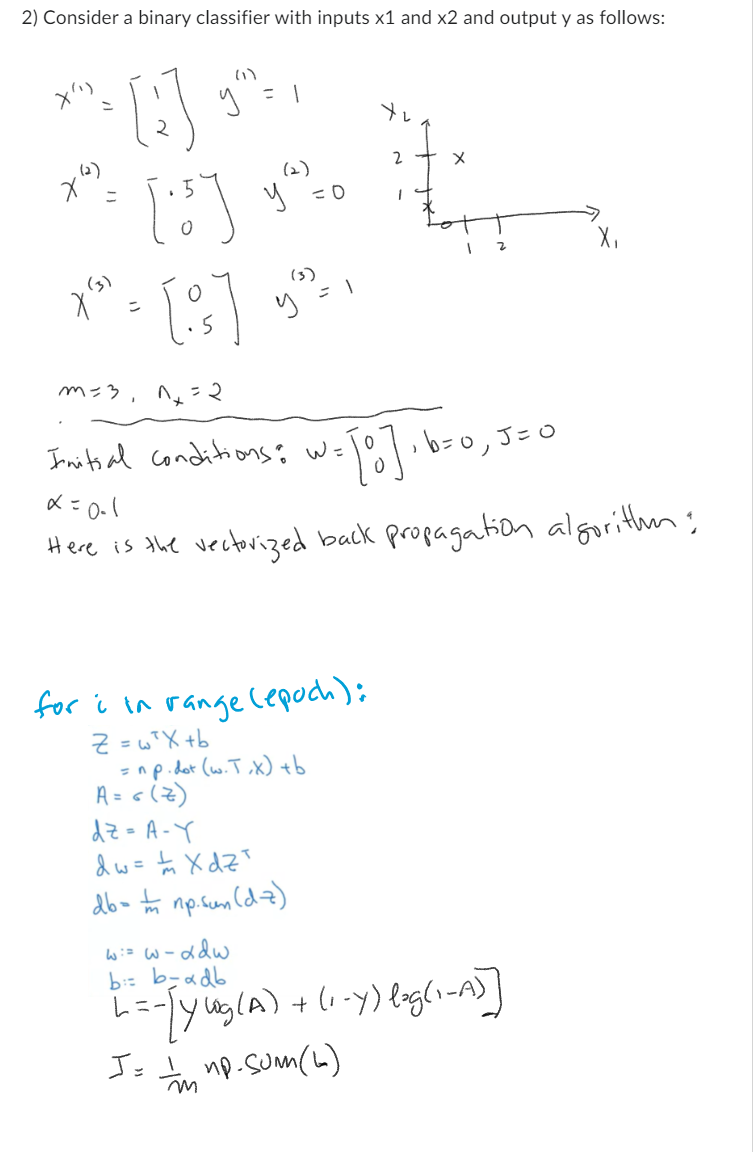 2) Consider a binary classifier with inputs x1 and x2 and output y as follows:
x⁽¹⁾ = [1 2] y⁽¹⁾ = 1
x⁽²⁾ = [.5 0] y⁽²⁾ = 0
x⁽³⁾ = [0 .5] y⁽³⁾ = 1
X₂
2 x
1
x
o
1 2 X₁
m=3, nₓ=2
Initial conditions: w=[0 0], b=0, J=0
α = 0.1
Here is the vectorized back propagation algorithm:
for i in range(epoch):
Z = wᵀX+b
= np.dot(w.T,X)+b
A = σ(Z)
dZ = A-Y
dw = 1/m X dZᵀ
db = 1/m np.sum(dZ)
w:= w-αdw
b:= b-αdb
L=-[y log(A) + (1-y) log(1-A)]
J = 1/m np.sum(L)